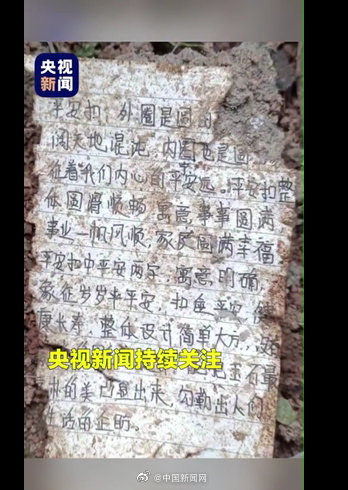 央视
新闻
平安扣：外圈是圆的
阔天地混沌，内圈也是圆
征着我们内心的平安远。平安扣整
体圆滑顺畅，寓意，事事圆满
事业一帆风顺，家庭圆满幸福
平安扣中平安两字，寓意明确，
象征岁岁年平安，扣住平安，健
康长寿，整体设计简单大方，
央视新闻持续关注
的美凸显出来，勾勒出人们
生活的企盼。
@中国新闻网